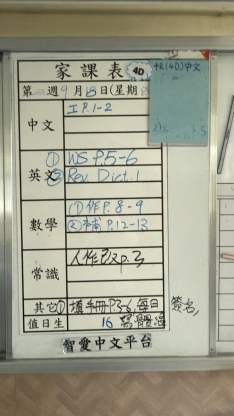 家課表 4D
第 週 9 月 13 日(星期
4R(4D)中文
中文
工 P.1-2
英文
① WS P.5-6
② Rev. Dict. 1
數學
① 作 P.8-9
② 補 P.12-13
常識
其它 ① 填手冊 P.3-6, 每日 簽名,
值日生 16 寫體溫
智愛中文平台